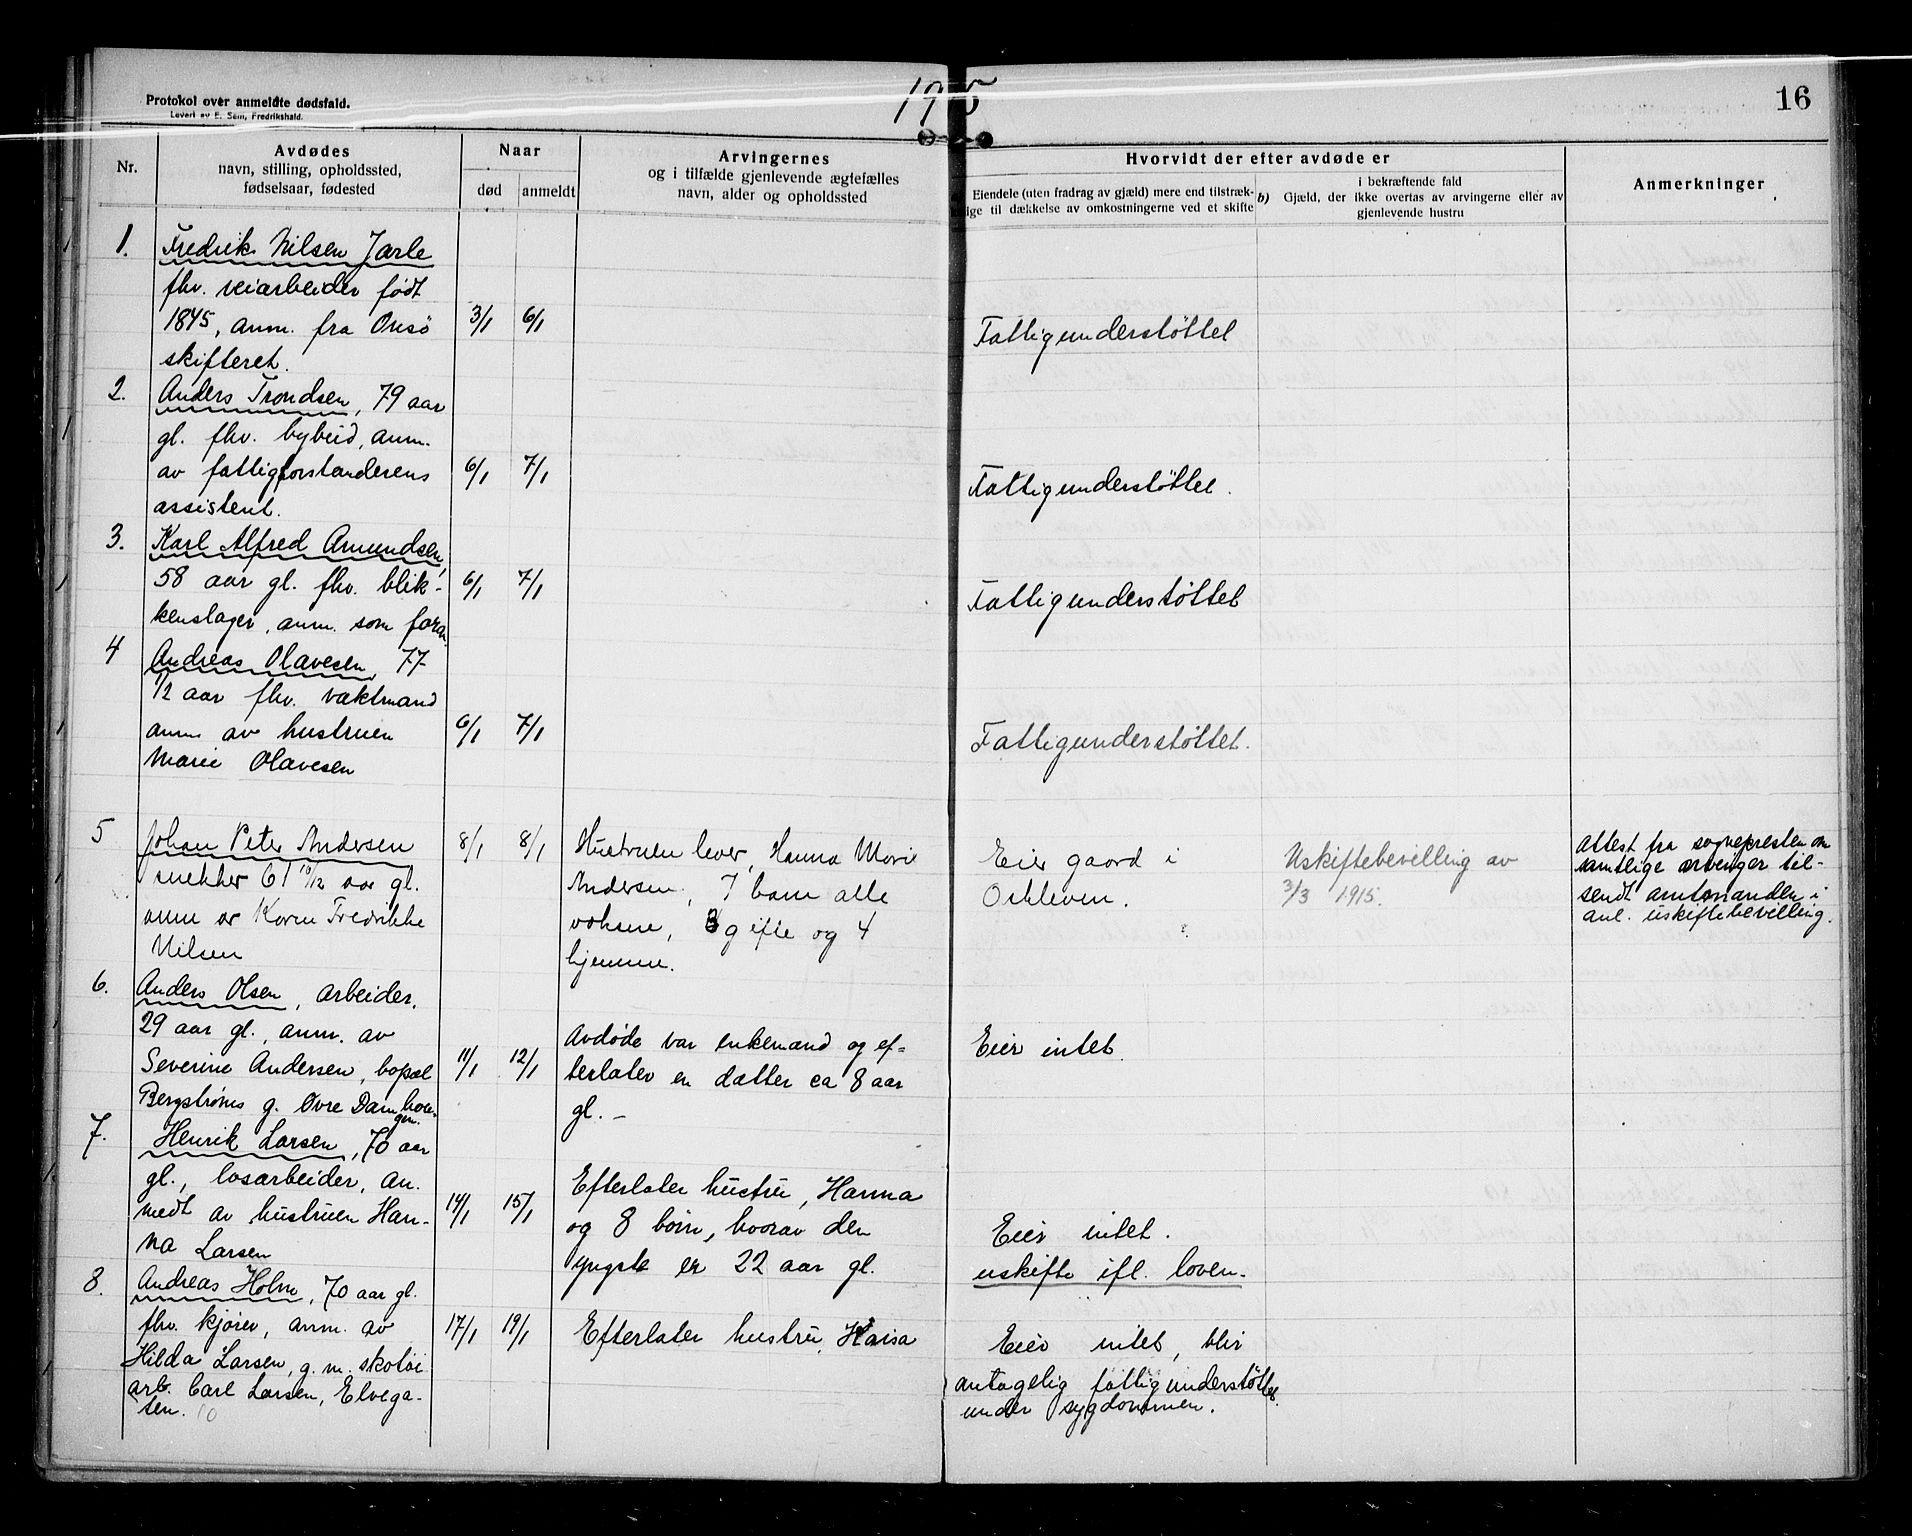 Protokol over anmeldte dødsfald.
Levert av E. Sem, Fredrikshald.
1915
16
Nr.
Avdødes
navn, stilling, opholdssted,
fødselsaar, fødested
Naar
død
anmeldt
Arvingernes
og i tilfælde gjenlevende ægtefælles
navn, alder og opholdssted
Hvorvidt der efter avdøde er
Eiendele (uten fradrag av gjæld) mere end tilstræk-
lige til dækkelse av omkostningerne ved et skifte
i bekræftende fald
b) Gjæld, der ikke overtas av arvingerne eller av
gjenlevende hustru
Anmerkninger
1.
Fredrik Nilsen Jarle
fhv. veiarbeider født
1845, anm. fra Onsø
skifteret.
3/1 6/1
Fattigunderstøttet
2.
Anders Trondsen, 79 aar
gl. fhv. bybud, anm.
av fattigforstanderens
assistent.
6/1 7/1
Fattigunderstøttet.
3.
Karl Alfred Amundsen,
58 aar gl. fhv. blik-
kenslager, anm. som foran
6/1 7/1
Fattigunderstøttet
4
Andreas Olavesen, 77
1/2 aar fhv. vaktmand
anm av hustruen
Marie Olavesen
6/1 7/1
Fattigunderstøttet.
5
Johan Peter Andersen
snekker 61 10/12 aar gl.
anm av Karen Fredrikke
Nilsen
8/1 8/1
Hustruen lever, Hanna Marie
Andersen, 7 barn alle
voksne, 3 gifte og 4
hjemme.
Eier gaard i
Oskleven.
Uskiftebevilling av
3/3 1915.
Attest fra sognepresten om
samtlige arvinger til-
sendt amtmanden i
anl. uskiftebevilling.
6.
Anders Olsen, arbeider,
29 aar gl., anm. av
Severine Andersen, bopæl
Bergstrøms g. Øvre Damhau-
gen.
11/1 12/1
Avdøde var enkemand og ef-
terlater en datter ca 8 aar
gl. -
Eier intet.
7.
Henrik Larsen, 70 aar
gl., losarbeider, an.
medt av hustruen Han-
na Larsen
14/1 15/1
Efterlater hustru, Hanna
og 8 børn, hvorav den
yngste er 22 aar gl.
Eier intet.
uskifte ifl. loven.
8.
Andreas Holm, 70 aar gl.
fhv. kjører, anm. av
Hilda Larsen, g. m. skotøi
arb. Carl Larsen, Elvega-
ten. 10
17/1 19/1
Efterlater hustru, Kaisa
Eier intet, blir
antagelig fattigunderstøttet
under sygdommen.